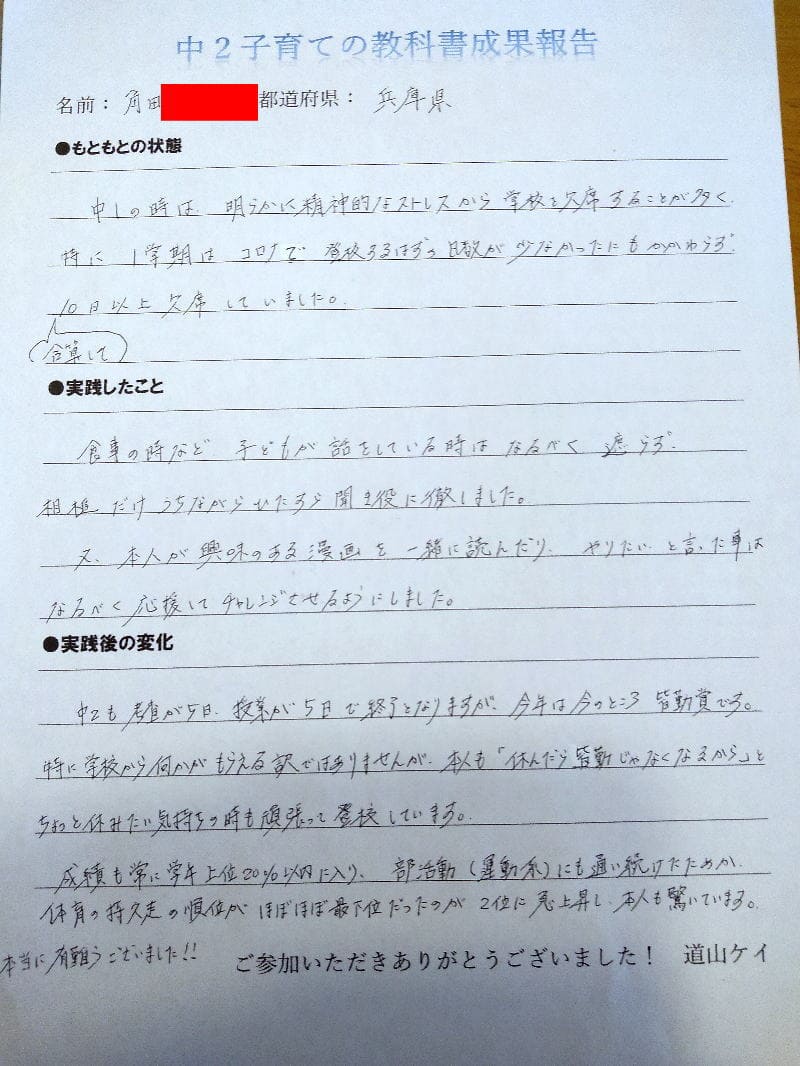 中2子育ての教科書成果報告
名前：角田 都道府県：兵庫県
●もともとの状態
中1の時は、明らかに精神的なストレスから学校を欠席することが多く、
特に1学期はコロナで登校するはずの日数が少なかったにもかかわらず、
10日以上欠席していました。
合算して
●実践したこと
食事の時など、子どもが話をしている時はなるべく遮らず、
相槌だけうちながらひたすら聞き役に徹しました。
又、本人が興味のある漫画を一緒に読んだり、やりたいと言った事は
なるべく応援してチャレンジさせるようにしました。
●実践後の変化
中2も考査が5日、授業が5日で終了となりますが、今年は今のところ皆勤賞です。
特に学校から何かがもらえる訳ではありませんが、本人も「休んだら皆勤じゃなくなるから」と
ちょっと休みたい気持ちの時も頑張って登校しています。
成績も常に学年上位20%以内に入り、部活動（運動系）にも通い続けたためか、
体育の持久走の順位がほぼほぼ最下位だったのが2位に急上昇し、本人も驚いています。
本当に有難うございました!!
ご参加いただきありがとうございました！ 道山ケイ